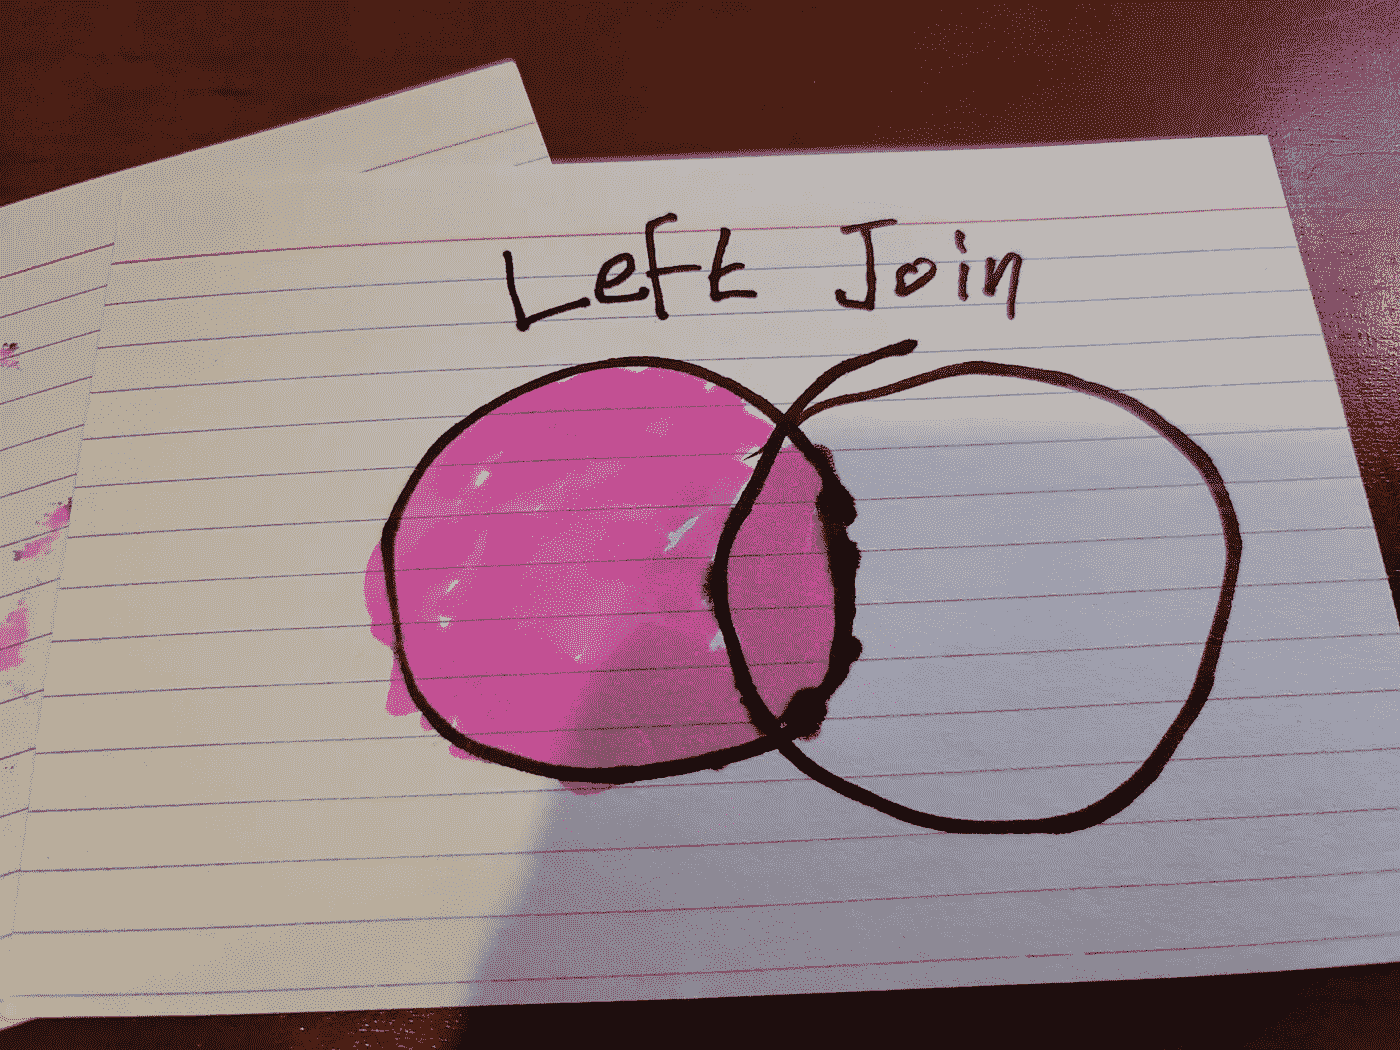 Left Join